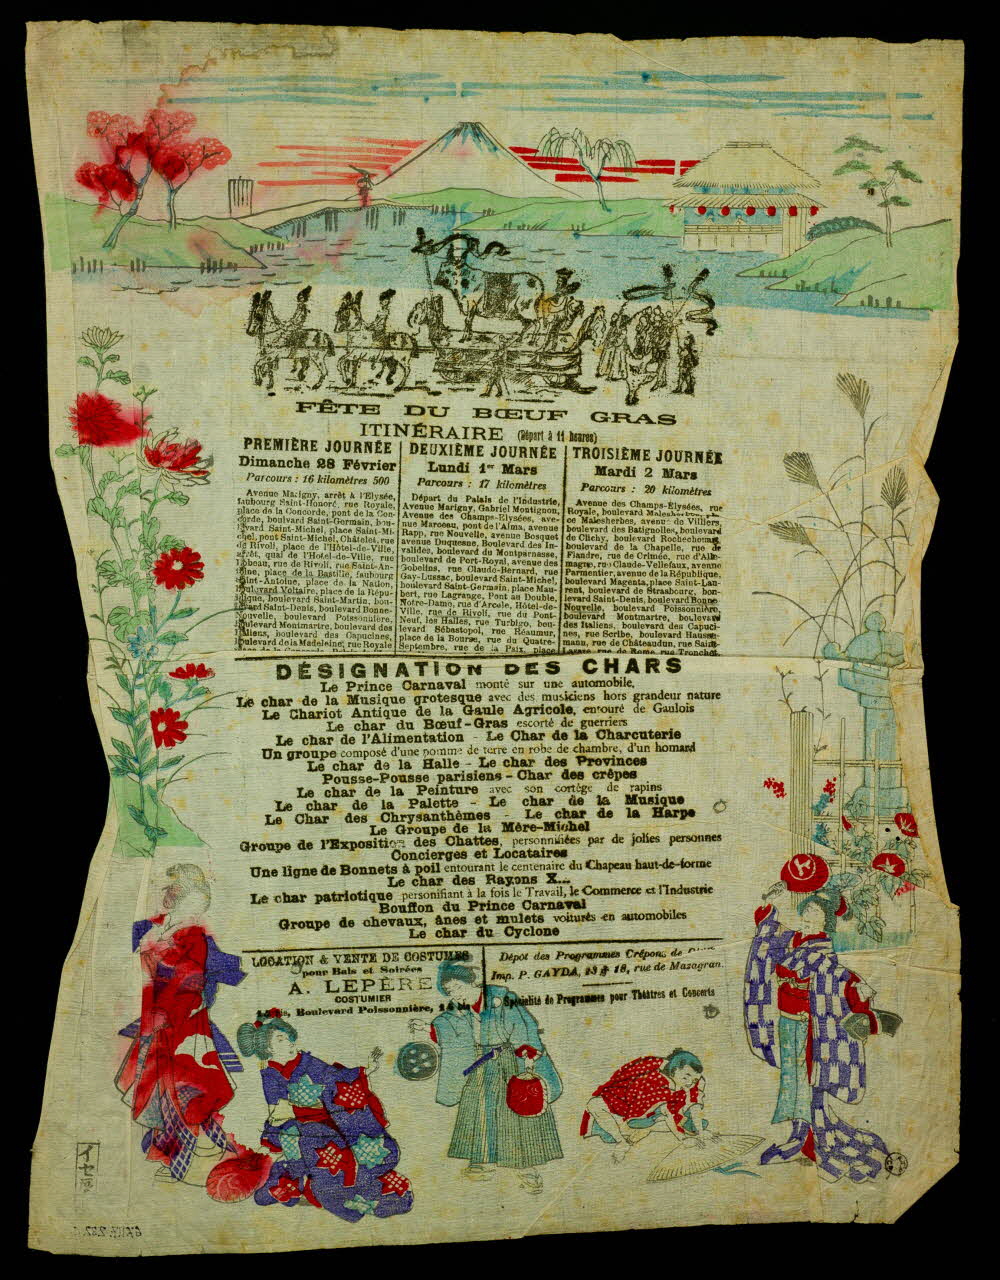 FÊTE DU BŒUF GRAS
ITINÉRAIRE (Départ à 11 heures)
PREMIÈRE JOURNÉE
Dimanche 28 Février
Parcours : 16 kilomètres 500
Avenue Marigny, arrêt à l'Elysée,
faubourg Saint-Honoré, rue Royale,
place de la Concorde, pont de la Con-
corde, boulvard Saint-Germain, bou-
levard Saint-Michel, place Saint-Mi-
chel, pont Saint-Michel, Châtelet, rue
de Rivoli, place de l'Hôtel-de-Ville,
quai de l'Hotel-de-Ville, rue
Lobeau, rue de Rivoli, rue Saint-An-
toine, place de la Bastille, faubourg
Saint-Antoine, place de la Nation,
boulevard Voltaire, place de la Répu-
blique, boulevard Saint-Martin, bou-
levard Saint-Denis, boulevard Bonne-
Nouvelle, boulevard Poissonnière,
boulevard Montmartre, boulevard des
Italiens, boulevard des Capucines,
boulevard de la Madeleine, rue Royale
place de la Concorde
DEUXIÈME JOURNÉE
Lundi 1er Mars
Parcours : 17 kilometres
Départ du Palais de l'Industrie,
Avenue Marigny, Gabriel Montignon,
Avenue des Champs-Elysées, ave-
nue Marceau, pont de l'Alma, avenue
Rapp, rue Nouvelle, avenue Bosquet
avenue Duquesne, Boulevard des In-
valides, boulevard du Montparnasse,
boulevard de Port-Royal, avenue des
Gobelins, rue Claude-Bernard, rue
Gay-Lussac, boulevard Saint-Michel,
boulevard Saint-Germain, place Mau-
bert, rue Lagrange, Pont au Double,
Notre-Dame, rue d'Arcole, Hôtel-de-
Ville, rue de Rivoli, rue du Pont-
Neuf, les Halles, rue Turbigo, bou-
levard Sébastopol, rue Réaumur,
place de la Bourse, rue du Quatre-
Septembre, rue de la Paix, place
TROISIÈME JOURNÉE
Mardi 2 Mars
Parcours : 20 kilomètres
Avenue des Champs-Elysées, rue
Royale, boulevard Malesherbes,
ce Malesherbes, avenue de Villiers,
boulevard des Batignolles, boulevard
de Clichy, boulevard Rochechouart
boulevard de la Chapelle, rue de
Flandre, rue de Crimée, rue d'Alle-
magne, rue Claude-Vellefaux, avenue
Parmentier, avenue de la République,
boulevard Magenta, place Saint-Lau-
rent, boulevard de Strasbourg, bou-
levard Saint-Denis, boulevard Bonne-
Nouvelle, boulevard Poissonnière,
boulevard Montmartre, boulevard
des Italiens, boulevard des Capuci-
nes, rue Scribe, boulevard Hauss-
manu, rue de Châteaudun, rue Saint-
Lazare, rue de Rome, rue Tronchet,
DÉSIGNATION DES CHARS
Le Prince Carnaval monté sur une automobile,
Le char de la Musique grotesque avec des musiciens hors grandeur nature
Le Chariot Antique de la Gaule Agricole, entouré de Gaulois
Le char du Bœuf-Gras escorté de guerriers
Le char de l'Alimentation - Le Char de la Charcuterie
Un groupe composé d'une pomme de terre en robe de chambre, d'un homard
Le char de la Halle - Le char des Provinces
Pousse-Pousse parisiens - Char des crêpes
Le char de la Peinture avec son cortège de rapins
Le char de la Palette - Le char de la Musique
Le Char des Chrysanthèmes - Le char de la Harpe
Le Groupe de la Mère-Michel
Groupe de l'Exposition des Chattes, personnifiées par de jolies personnes
Concierges et Locataires
Une ligne de Bonnets à poil entourant le centenaire du Chapeau haut-de-forme
Le char des Rayons X...
Le char patriotique personifiant à la fois le Travail, le Commerce et l'Industrie
Bouffon du Prince Carnaval
Groupe de chevaux, ânes et mulets voiturés en automobiles
Le char du Cyclone
LOCATION & VENTE DE COSTUMES
pour Bals et Soirées
A. LEPÈRE
COSTUMIER
14 bis, Boulevard Poissonnière, 14 bis
Dépôt des Programmes Crépons de
Imp. P. GAYDA, 13 & 18, rue de Mazagran
Spécialité de Programmes pour Théâtres et Concerts
イセ